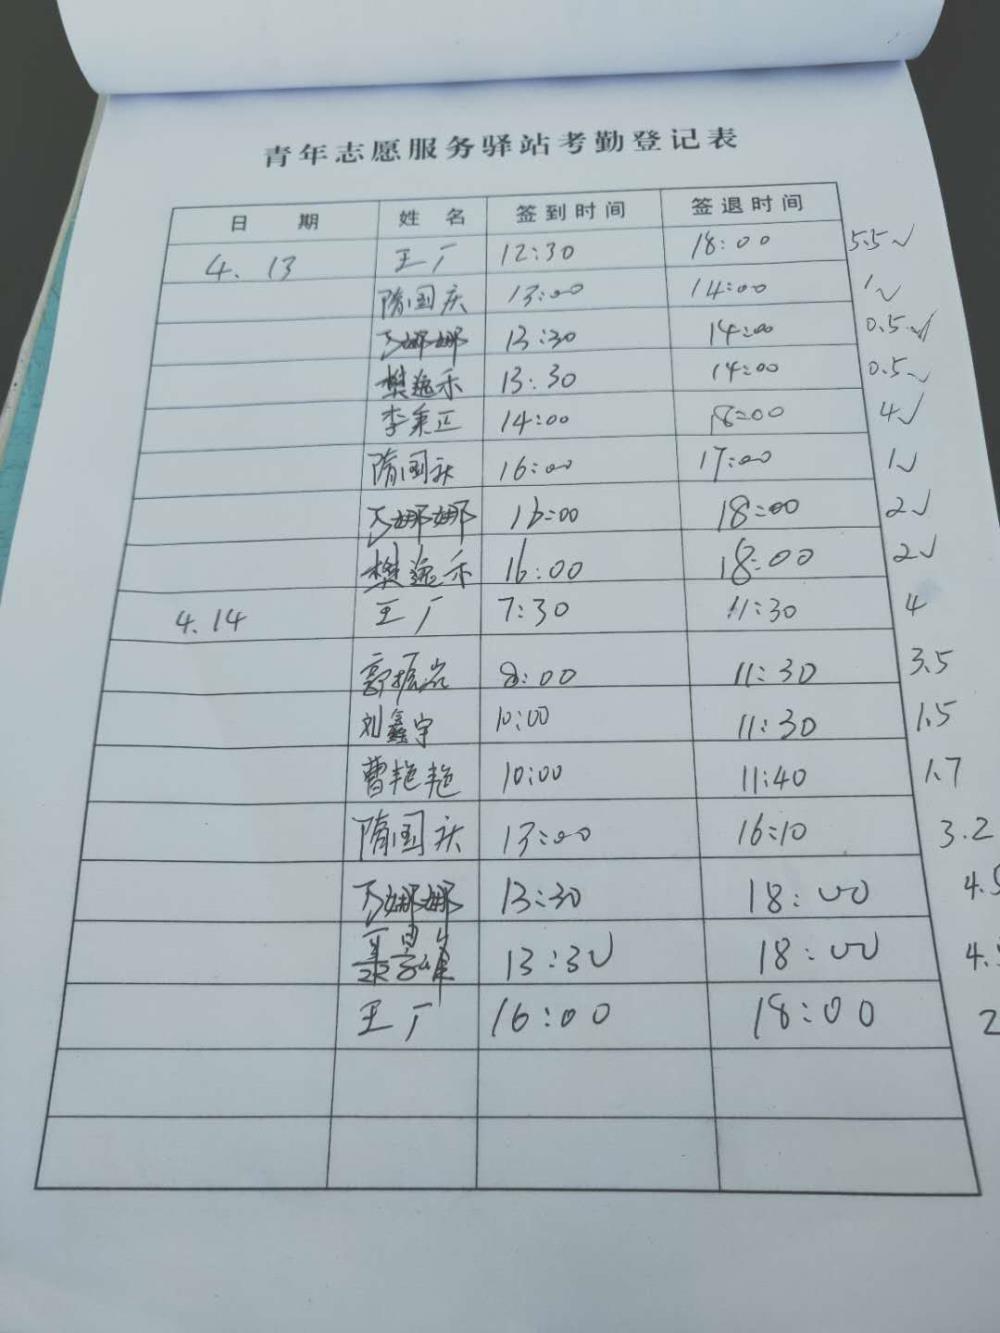 青年志愿服务驿站考勤登记表
日 期 姓 名 签到时间 签退时间
4.13 王厂 12:30 18:00 5.5√
隋国庆 13:00 14:00 1√
娜娜 13:30 14:00 0.5√
樊逸禾 13:30 14:00 0.5√
李秉正 14:00 18:00 4√
隋国庆 16:00 17:00 1√
娜娜 16:00 18:00 2√
樊逸禾 16:00 18:00 2√
4.14 王厂 7:30 11:30 4
郭振岩 8:00 11:30 3.5
刘鑫宇 10:00 11:30 1.5
曹艳艳 10:00 11:40 1.7
隋国庆 13:00 16:10 3.2
娜娜 13:30 18:00 4.5
13:30 18:00 4.5
王厂 16:00 18:00 2